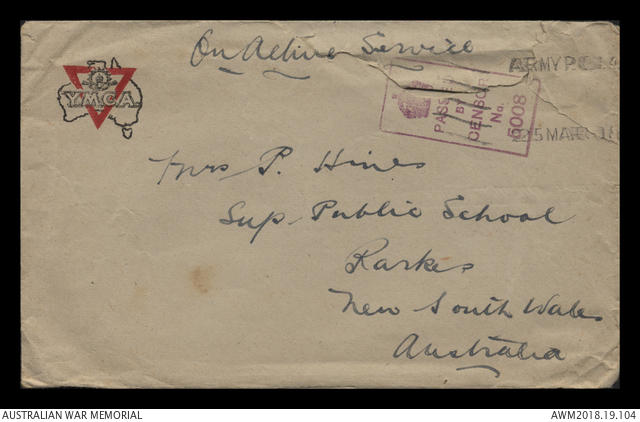 On Active Service
ARMY P.O.
Y.M.C.A.
PASSED
BY
CENSOR
No. 5008
25 MAR 18
Mrs P. Hines
Sup. Public School
Parkes
New South Wales
Australia
AUSTRALIAN WAR MEMORIAL
AWM2018.19.104